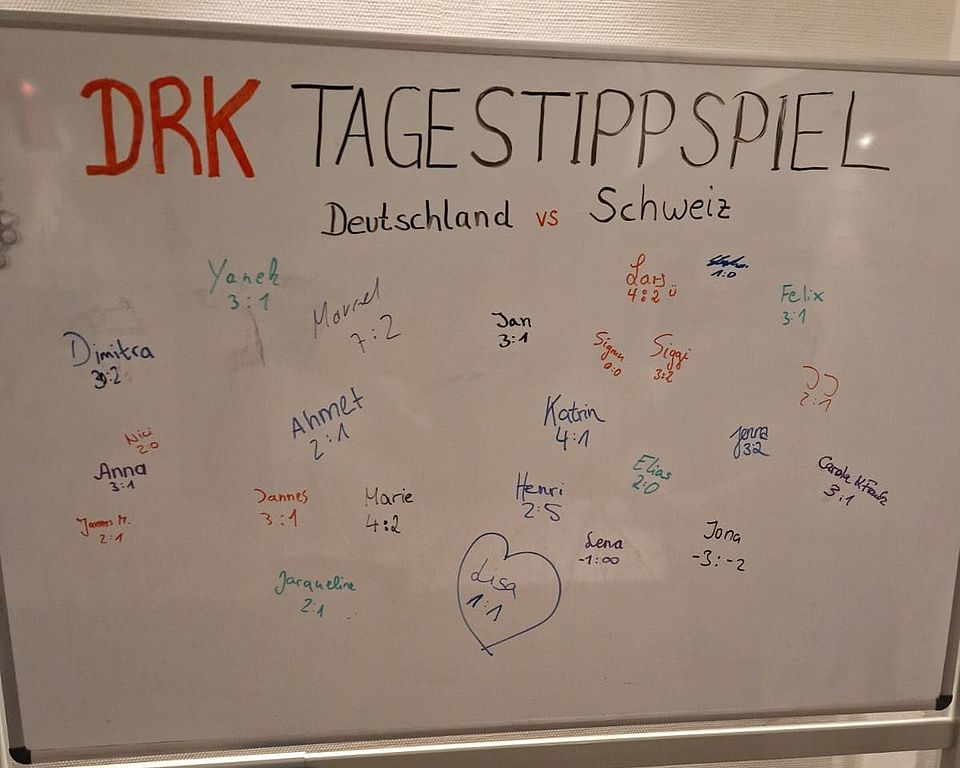 DRK TAGESTIPPSPIEL
Deutschland vs Schweiz
Yanek
3:1
Marcel
7:2
Lars
4:2 ü
1:0
Felix
3:1
Jan
3:1
Dimitra
3:2
Sigrun
0:0
Siggi
3:2
JJ
2:1
Ahmet
2:1
Katrin
4:1
Jenna
3:2
Nici
2:0
Anna
3:1
Elias
2:0
Carola
3:1
Jannes
3:1
Marie
4:2
Henri
2:5
Jannes M.
2:1
Lena
-1:00
Jona
-3:-2
Jacqueline
2:1
Lisa
1:1